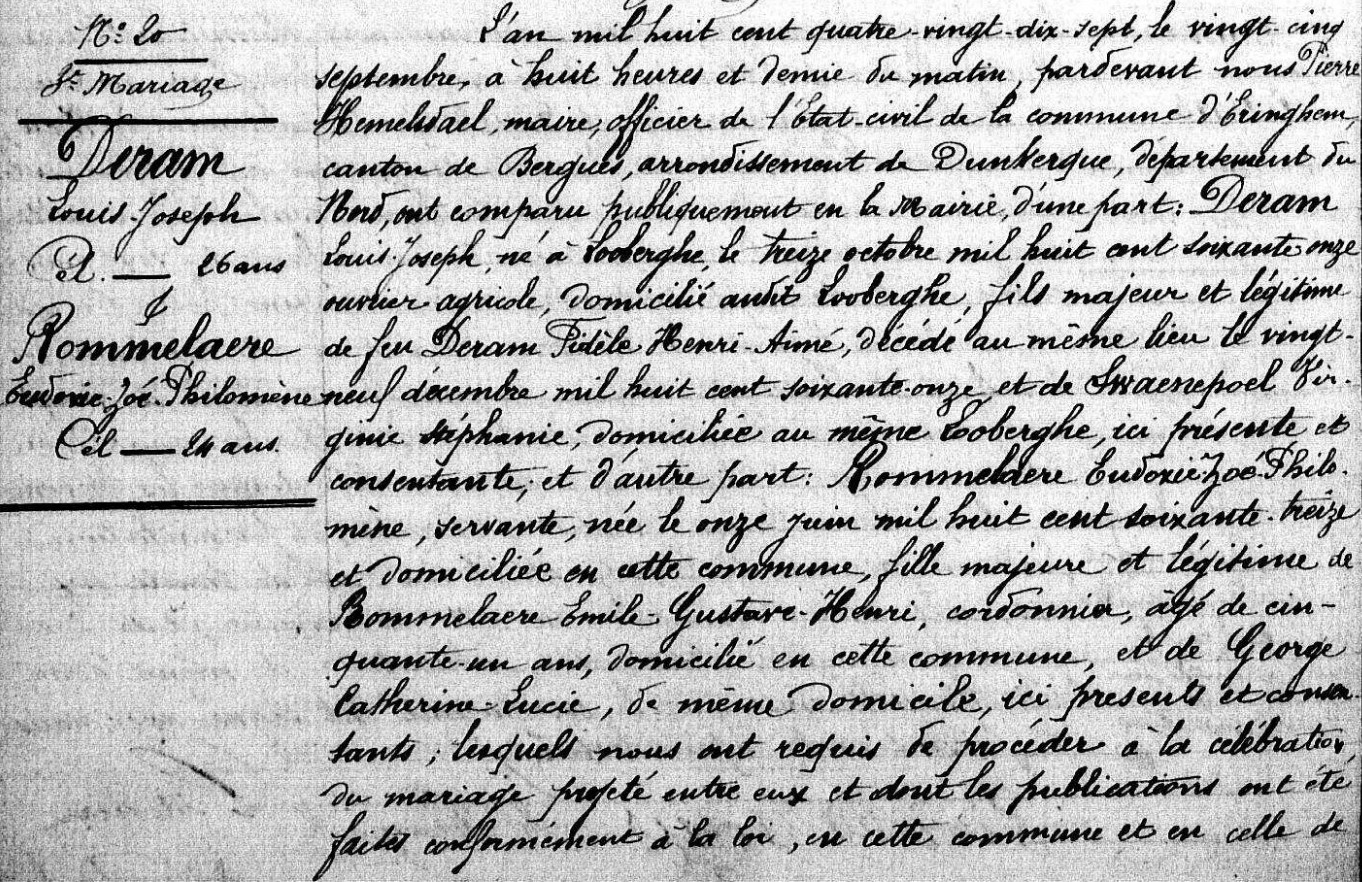 N° 20
St Mariage
Deram
Louis-Joseph
Cél. — 26 ans
&
Rommelaere
Eudoxie-Zoé-Philomène
Cél — 24 ans.
L'an mil huit cent quatre-vingt-dix-sept, le vingt-cinq
septembre, à huit heures et demie du matin, pardevant nous Pierre
Hemelsdael, maire, officier de l'Etat-civil de la commune d'Eringhem,
canton de Bergues, arrondissement de Dunkerque, département du
Nord, ont comparu publiquement en la Mairie, d'une part: Deram
Louis-Joseph, né à Looberghe, le treize octobre mil huit cent soixante onze
ouvrier agricole, domicilié audit Looberghe, fils majeur et légitime
de feu Deram Fidèle Henri-Aimé, décédé au même lieu le vingt-
neuf décembre mil huit cent soixante-onze, et de Swaenepoel Vir-
ginie Stéphanie, domiciliée au même Looberghe, ici présente et
consentante; et d'autre part: Rommelaere Eudoxie-Zoé-Philo-
mène, servante, née le onze juin mil huit cent soixante-treize
et domiciliée en cette commune, fille majeure et légitime de
Rommelaere Emile-Gustave-Henri, cordonnier, âgé de cin-
quante-un ans, domicilié en cette commune, et de George
Catherine-Lucie, de même domicile, ici presents et consen-
tants; lesquels nous ont requis de procéder à la célébration
du mariage projeté entre eux et dont les publications ont été
faites conformément à la loi, en cette commune et en celle de